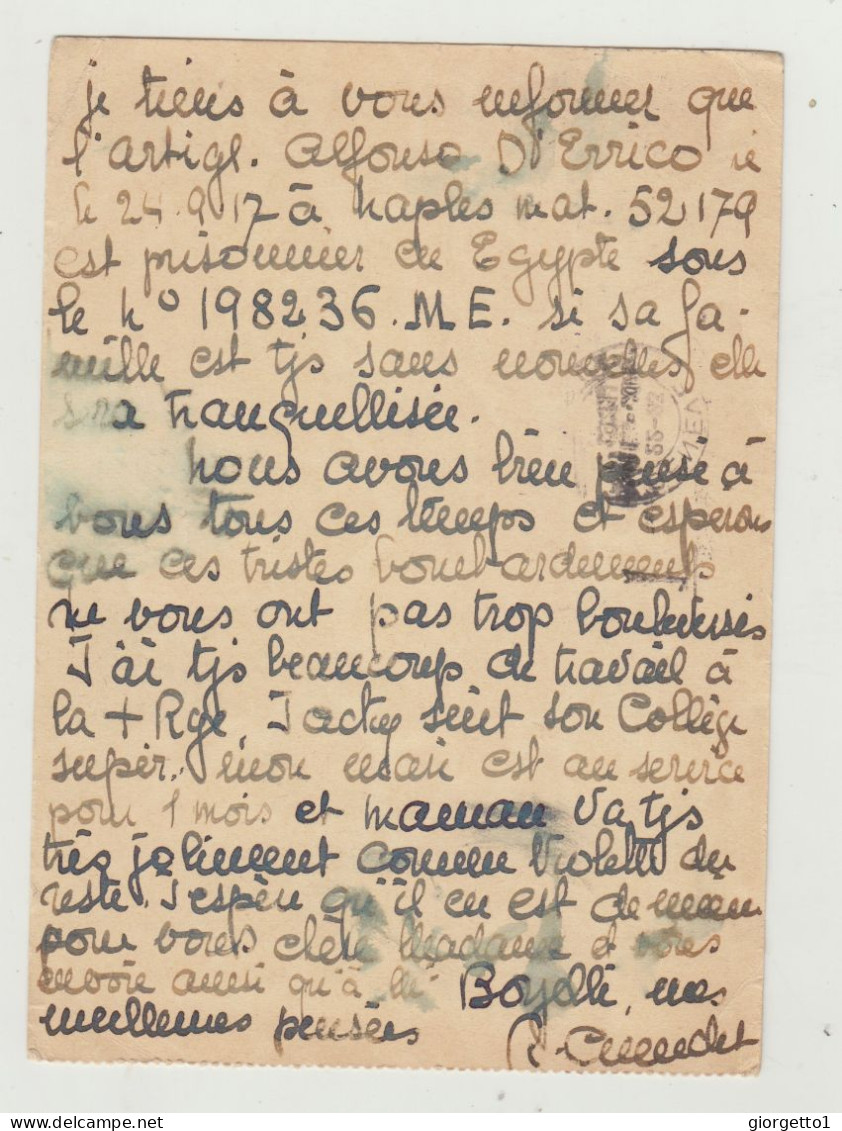 je tiens à vous informer que
l'artigl. Alfonso D'Errico né
le 24.9.17 à Naples mat. 52179
est prisonnier en Egypte sous
le No 198236. M E. si sa fa-
mille est tjs sans nouvelles elle
sera tranquellisée.
Nous avons bien pensé à
vous tous ces temps et esperons
que ces tristes bombardements
ne vous ont pas trop bouleversés
J'ai tjs beaucoup de travail à
la + Rge, Jacky suit son Collège
super., mon mari est au service
pour 1 mois et maman va tjs
très joliment comme Violette du
reste. J'espère qu'il en est de même
pour vous chère Madame et vous
envoie ainsi qu'à Mr Boyelli, nos
meilleures pensées
giorgetto1